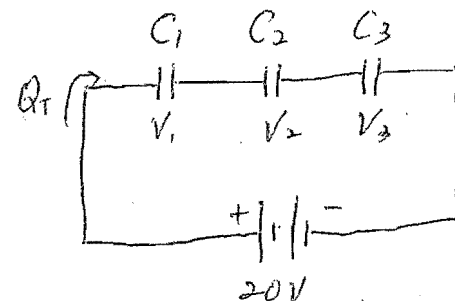 C₁ C₂ C₃
Q_T
V₁ V₂ V₃
+ -
20V